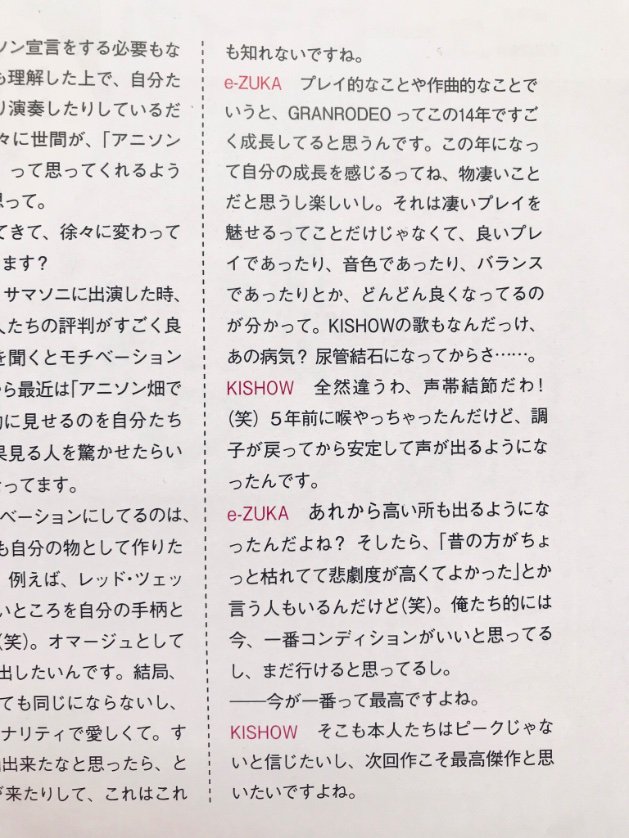 ソン宣言をする必要もな
も理解した上で、自分た
り演奏したりしているだ
々に世間が、「アニソン
って思ってくれるよう
思って。
てきて、徐々に変わって
ます？
サマソニに出演した時、
人たちの評判がすごく良
を聞くとモチベーション
ら最近は「アニソン畑で
に見せるのを自分たち
果見る人を驚かせたらい
なってます。
ベーションにしてるのは、
も自分の物として作りた
例えば、レッド・ツェッ
いところを自分の手柄と
（笑）。オマージュとして
出したいんです。結局、
ても同じにならないし、
ナリティで愛しくて。す
出来たなと思ったら、と
来たりして、これはこれ
も知れないですね。
e-ZUKA　プレイ的なことや作曲的なことで
いうと、GRANRODEOってこの14年ですご
く成長してると思うんです。この年になっ
て自分の成長を感じるってね、物凄いこと
だと思うし楽しいし。それは凄いプレイを
魅せるってことだけじゃなくて、良いプレ
イであったり、音色であったり、バランス
であったりとか、どんどん良くなってるの
が分かって。KISHOWの歌もなんだっけ、
あの病気？ 尿管結石になってからさ……。
KISHOW　全然違うわ、声帯結節だわ！
（笑）５年前に喉やっちゃったんだけど、調
子が戻ってから安定して声が出るようにな
ったんです。
e-ZUKA　あれから高い所も出るようにな
ったんだよね？ そしたら、「昔の方がちょ
っと枯れてて悲劇度が高くてよかった」とか
言う人もいるんだけど（笑）。俺たち的には
今、一番コンディションがいいと思ってる
し、まだ行けると思ってるし。
――今が一番って最高ですよね。
KISHOW　そこも本人たちはピークじゃな
いと信じたいし、次回作こそ最高傑作と思
いたいですよね。